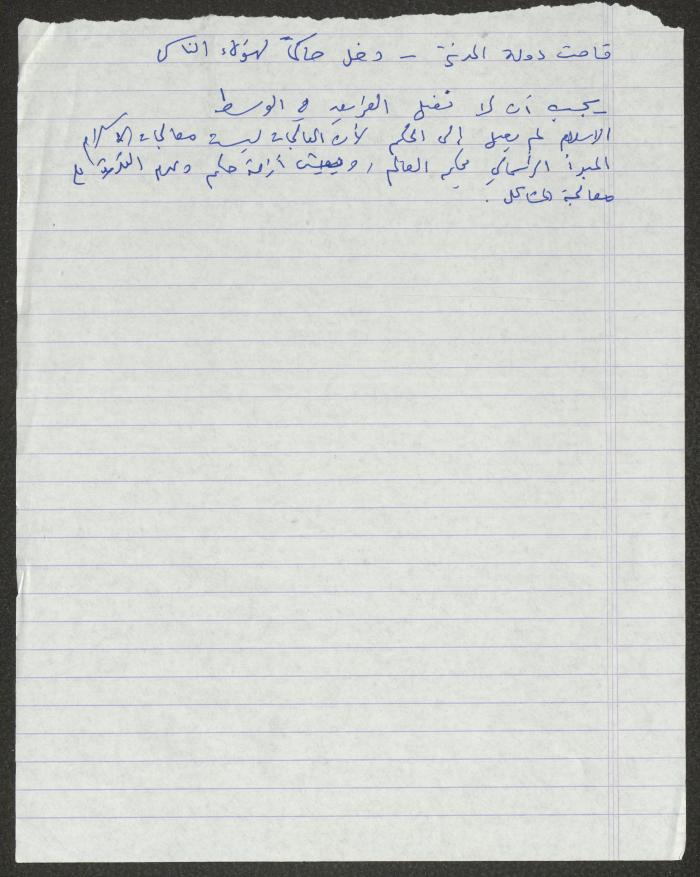 قامت دولة المدينة – دخل حاكماً لهؤلاء الناس
يجب أن لا نغفل في الوسط
الاسلام لم يصل إلى الحكم لأن المعالجات ليست معالجات الاسلام
المبدأ الرأسمالي يحكم العالم، ويعيش أزمة حكم وعدم القدرة على
معالجة المشاكل.